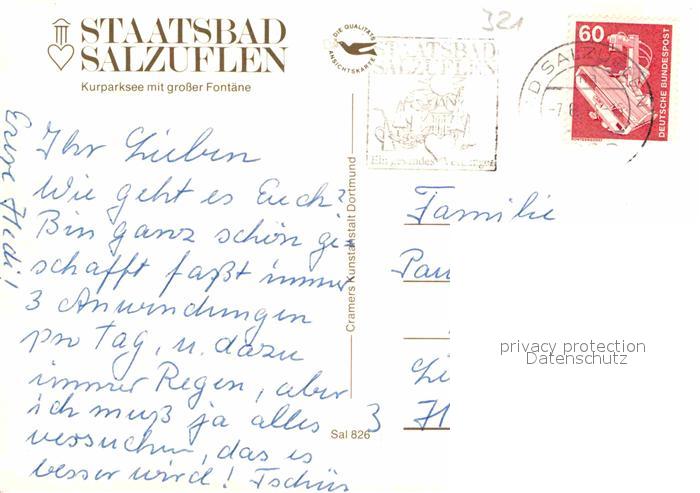 STAATSBAD
SALZUFLEN
Kurparksee mit großer Fontäne
DIE QUALITÄTS
ANSICHTSKARTE
321
STAATSBAD
SALZUFLEN
Ein gesundes Vergnügen
60
DEUTSCHE BUNDESPOST
D SALZUFLEN
Ihr Lieben
Wie geht es Euch?
Bin ganz schön ge-
schafft faßt immer
3 Anwendungen
pro Tag, u. dazu
immer Regen, aber
ich muß ja alles
versuchen, das es
besser wird! Tschüs
Eure Hedi!
Cramers Kunstanstalt Dortmund
Sal 826
Familie
Pau
Li
3
privacy protection
Datenschutz